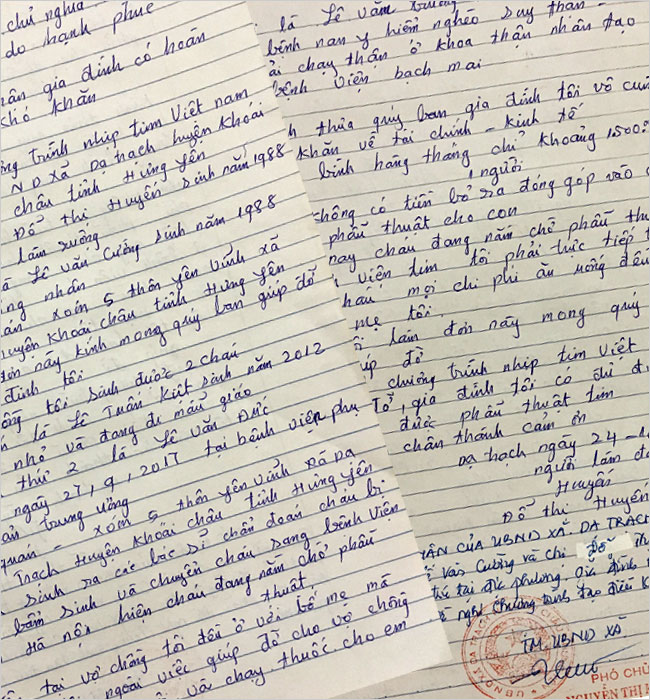 chủ nghĩa
do hạnh phúc
gia đình có hoàn
khó khăn
trình nhịp tim Việt nam
ND xã Dạ trạch huyện Khoái
châu tỉnh Hưng yên
Đỗ thị Huyến sinh năm 1988
làm ruộng
Lê văn Cường sinh năm 1988
nhân
xóm 5 thôn yên vĩnh xã
huyện Khoái châu tỉnh Hưng yên
đơn này kính mong quý ban giúp đỡ
đình tôi
tôi sinh được 2 cháu
là Lê Tuấn Kiệt sinh năm 2012
nhỏ và đang đi mẫu giáo
thứ 2 là Lê Văn Đức
ngày 27, 9, 2017 tại bệnh viện phụ
trung ương
quán - xóm 5 thôn yên vĩnh xã Dạ
Trạch huyện Khoái châu tỉnh Hưng yên
sinh ra các bác sĩ chẩn đoán cháu bị
bẩm sinh và chuyển cháu sang bệnh viện
Hà nội hiện cháu đang nằm chờ phẫu
thuật.
tại vợ chồng tôi đều ở với bố mẹ mà
ngoài việc giúp đỡ cho vợ chồng
và chạy thuốc cho em
là Lê văn
bệnh nan y hiểm nghèo suy thận -
chạy thận ở khoa thận nhân tạo
bệnh viện bạch mai
thưa quý ban gia đình tôi vô
khăn về tài chính - kinh tế
bình hàng tháng chỉ khoảng 1500
người
không có tiền bỏ ra đóng góp vào
phẫu thuật cho con
nay cháu đang nằm chờ phẫu
viện tim tôi phải trực tiếp
mọi chi phí ăn uống đều
mẹ tôi
làm đơn này mong quý
đỡ
chương trình nhịp tim Việt
, gia đình tôi có
được phẫu thuật tim
chân thành cảm ơn
Dạ trạch ngày 24
người làm
Huyến
Đỗ thị Huyến
CỦA UBND XÃ. DẠ TRẠCH
Văn Cường và chị Đỗ
tại địa phương. Gia đình
nghị chương trình tạo điều
TM. UBND XÃ
PHÓ CHỦ
NGUYỄN THỊ